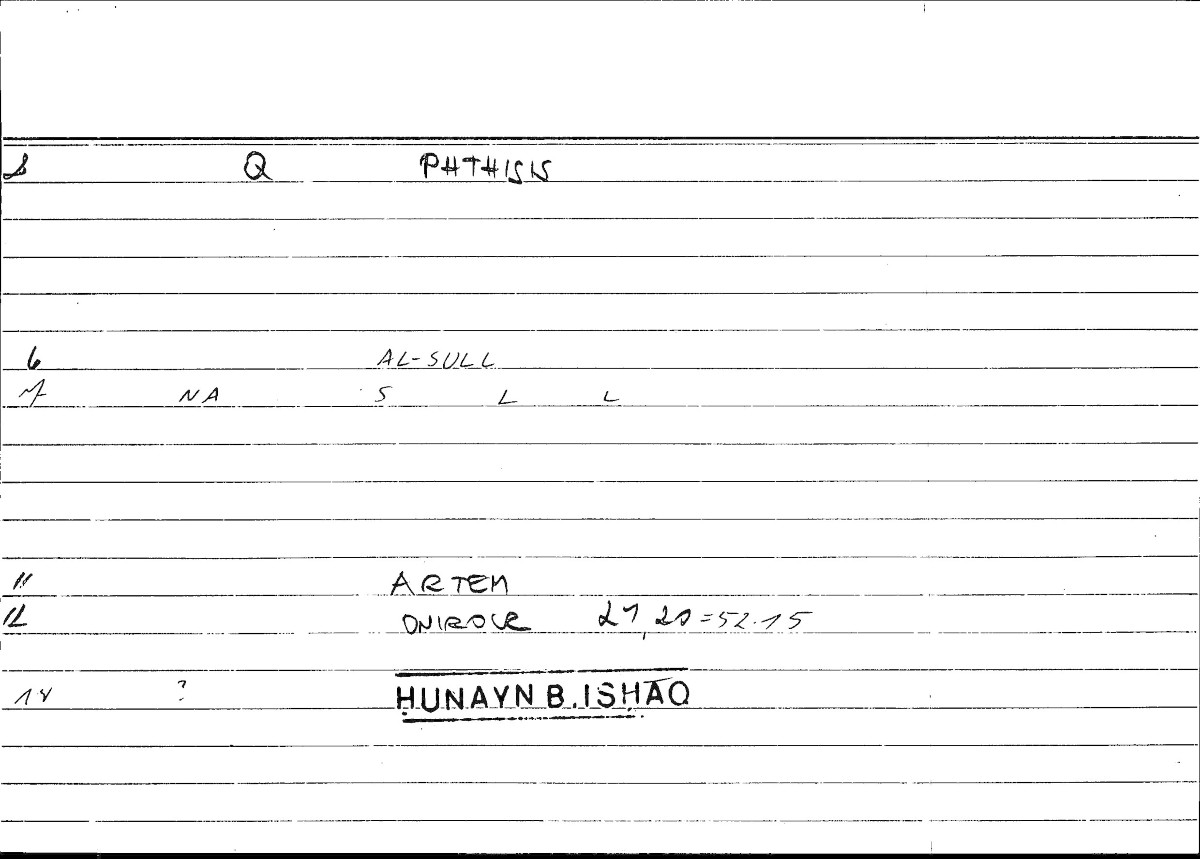 Q PHTHISIS
6 AL-SULL
NA S L L
11 ARTEM
12 ONIROCR 20 =52.15
? ḤUNAYN B. ISḤĀQ